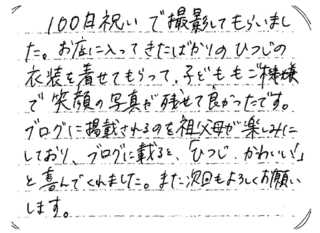 100日祝いで撮影してもらいまし
た。お店に入ってきたばかりのひつじの
衣装を着せてもらって、子どももご機嫌
で笑顔の写真が残せて良かったです。
ブログに掲載されるのを祖父母が楽しみに
しており、ブログに載ると、「ひつじ、かわいい!」
と喜んでくれました。また次回もよろしくお願い
します。